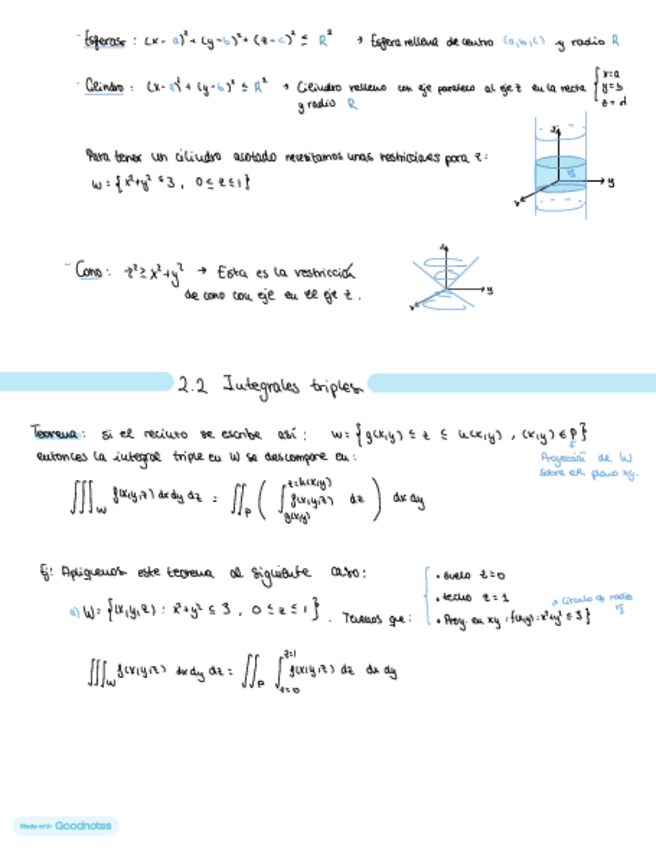 - Esferas: (x-a)² + (y-b)² + (z-c)² ≤ R² → Esfera rellena de centro (a,b,c) y radio R
- Cilindro: (x-a)² + (y-b)² ≤ R² → Cilindro relleno con eje paralelo al eje z en la recta { x=a y=b z=d
y radio R
Para tener un cilindro acotado necesitamos unas restricciones para z:
W = { x²+y² ≤ 3, 0 ≤ z ≤ 1 }
z
√3
y
x
- Cono: z² ≥ x²+y² → Esta es la restricción
de cono con eje en el eje z.
z
y
x
2.2 Integrales triples
Teorema: si el recinto se escribe así: W = { g(x,y) ≤ z ≤ h(x,y), (x,y) ∈ P }
entonces la integral triple en W se descompone en:
Proyección de W
sobre el plano xy.
∭_W f(x,y,z) dx dy dz = ∬_P ( ∫_{g(x,y)}^{z=h(x,y)} f(x,y,z) dz ) dx dy
Ej: Apliquemos este teorema al siguiente caso:
a) W = { (x,y,z) : x²+y² ≤ 3, 0 ≤ z ≤ 1 }. Tenemos que:
• suelo z=0
• techo z=1
• Proy. en xy: {(x,y): x²+y² ≤ 3}
→ Círculo de radio √3
∭_W f(x,y,z) dx dy dz = ∬_P ∫_{z=0}^{z=1} f(x,y,z) dz dx dy
Made with Goodnotes